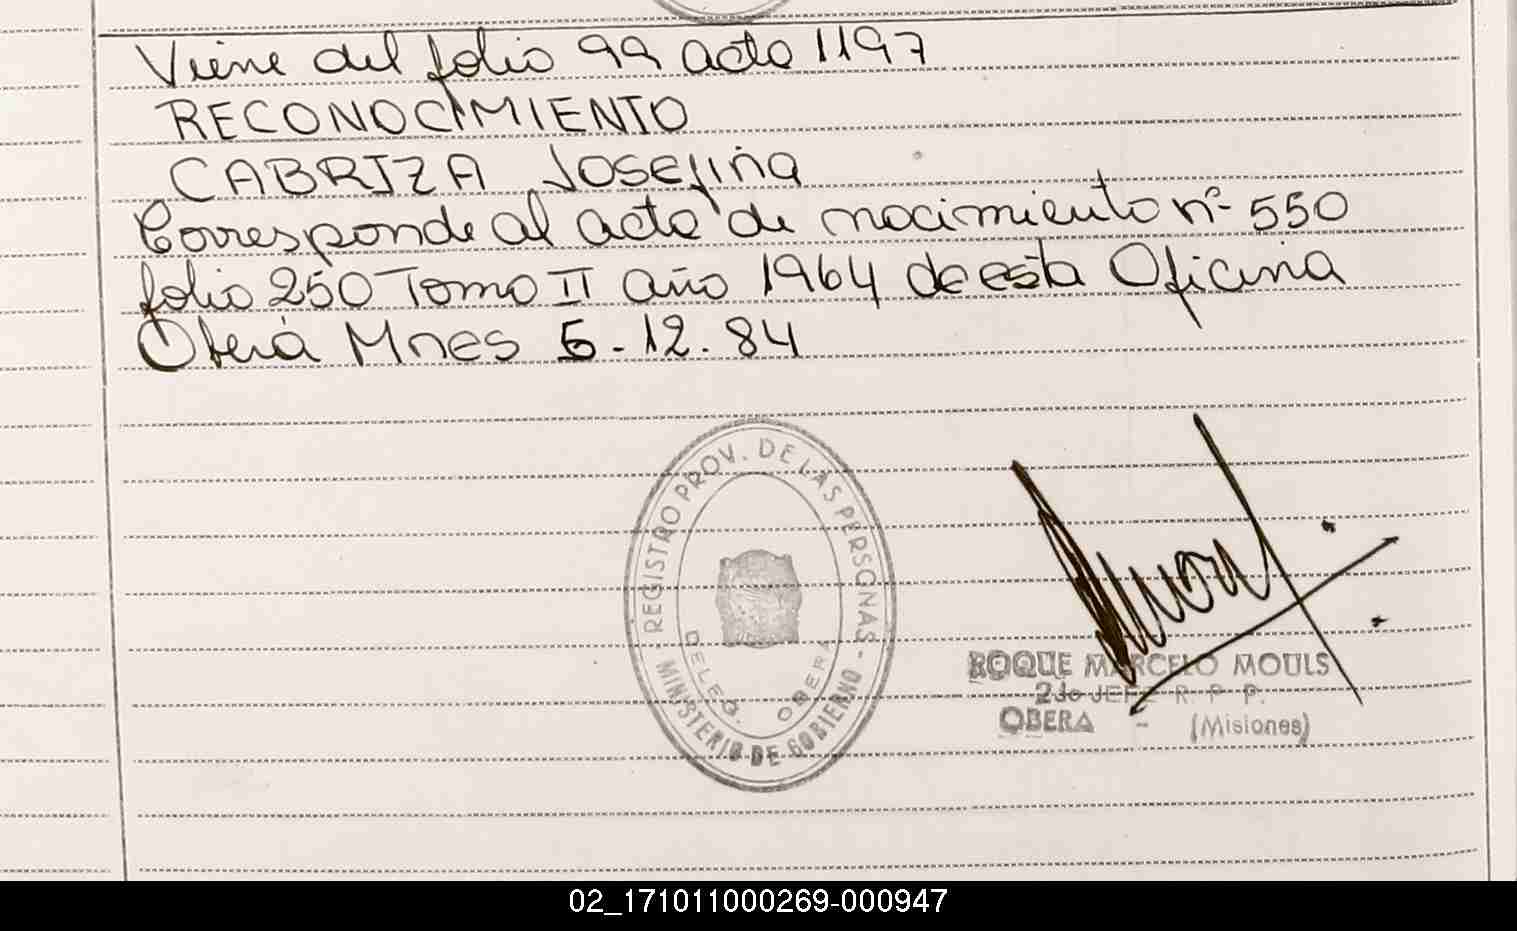 Viene del folio 99 acta 1197
RECONOCIMIENTO
CABRIZA Josefina
Corresponde al acta de nacimiento nº 550
folio 250 Tomo II año 1964 de esta Oficina
Oberá Mnes 5-12.84
REGISTRO PROV. DE LAS PERSONAS
- MINISTERIO DE GOBIERNO -
DELEG. OBERA
ROQUE MARCELO MOULS
2do JEFE R. P. P.
OBERA - (Misiones)
02_171011000269-000947